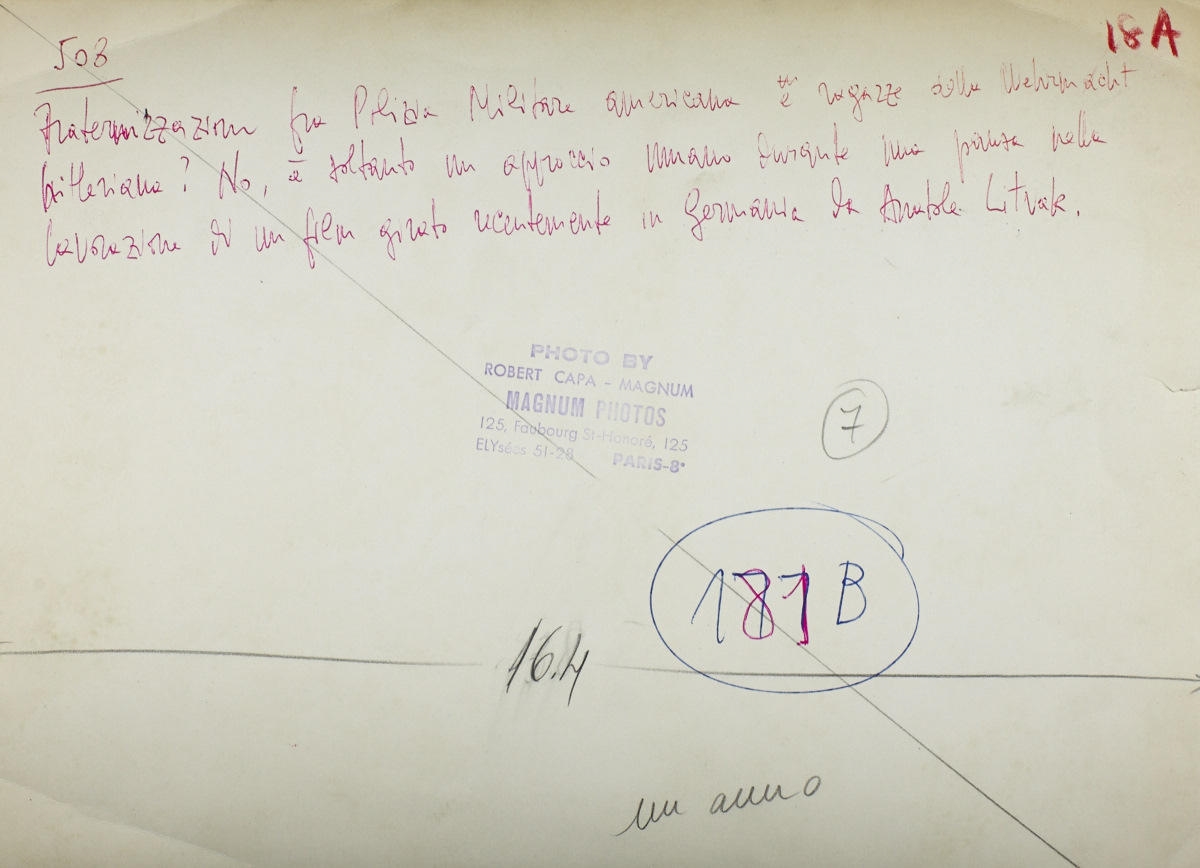 18A
503
Fraternizzazione fra Polizia Militare americana e ragazze della Wehrmacht
hitleriana? No, è soltanto un approccio umano durante una pausa nella
lavorazione di un film girato recentemente in Germania da Anatole Litvak.
PHOTO BY
ROBERT CAPA - MAGNUM
MAGNUM PHOTOS
125, Faubourg St-Honoré, 125
ELYsées 51-28 PARIS-8e
7
181 B
16.4
un anno